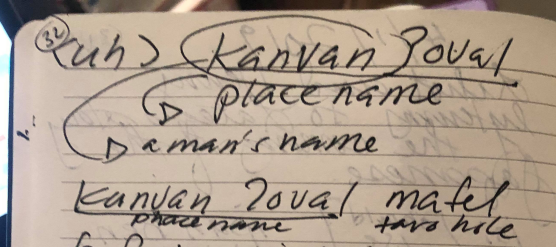 32
(uh) kanvan ʔoval
place name
a man's name
kanvan ʔoval mafel
place name taro hole